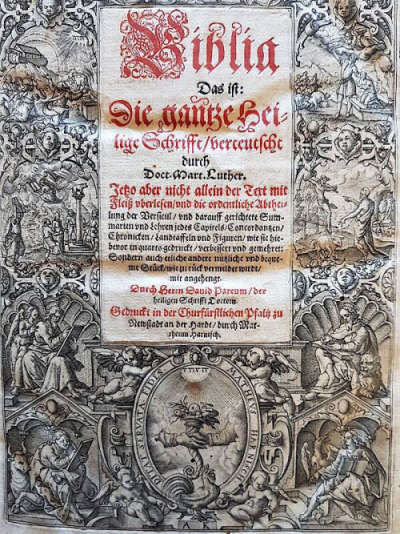 Biblia
Das ist:
Die gantze Hei-
lige Schrifft / verteutscht
durch
Doct. Mart. Luther.
Jetzo aber nicht allein der Text mit
Fleiß vberlesen / vnd die ordentliche Abthei-
lung der Versicul / vnd darauff gerichtete Sum-
marien vnd Lehren jedes Capitels / Concordantzen /
Chronicken / Landtaffeln vnd Figuren / wie sie hie-
bevor in quarto gedruckt / verbessert vnd gemehret:
Sondern auch etliche andere nutzliche vnd beque-
me Stück / wie zu rück vermeldet wirdt /
mit angehengt.
Durch Herrn David Pareum / der
heiligen Schrifft Doctorn.
Gedruckt in der Churfürstlichen Pfaltz zu
Newstadt an der Hardt / durch Mat-
thaeum Harnisch.